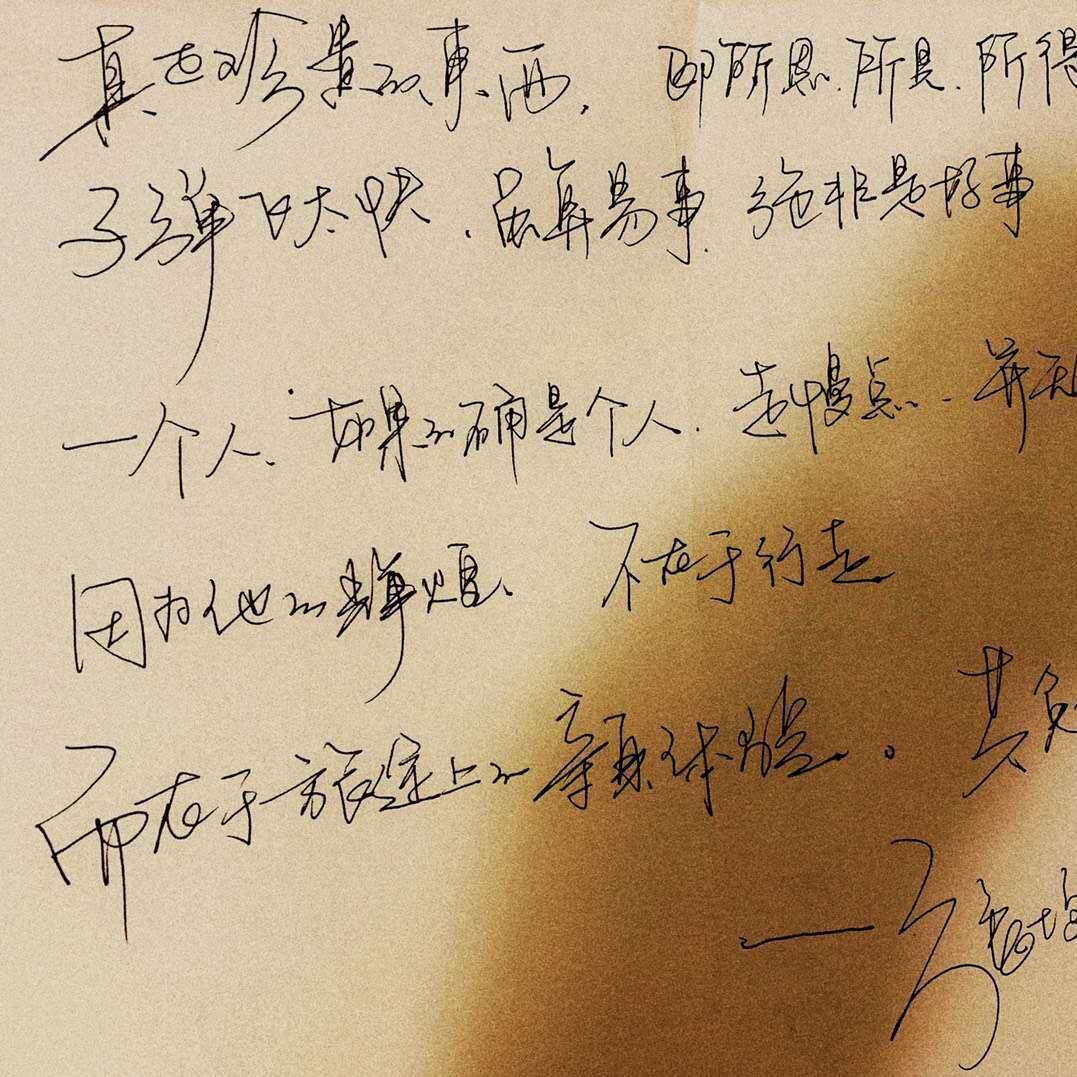 真正珍贵的东西,即所思.所见.所得
子弹飞太快.虽算易事.绝非是好事
一个人.如果的确是个人.走慢点.并无
因为他的辉煌.不在于行走
而在于旅途上的亲身体验。共勉